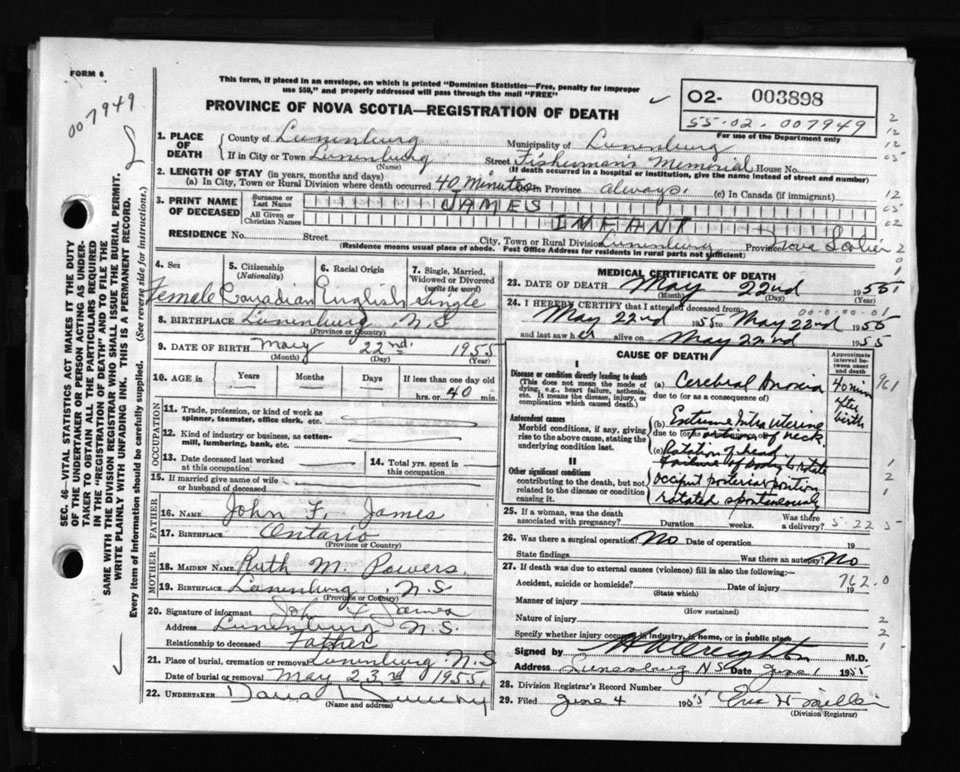 FORM 6
007949
This form, if placed in an envelope, on which is printed "Dominion Statistics—Free, penalty for improper
use $50," and properly addressed will pass through the mail "FREE"
PROVINCE OF NOVA SCOTIA—REGISTRATION OF DEATH
02- 003898
55-02-007949
For use of the Department only
1. PLACE OF DEATH
County of Lunenburg Municipality of Lunenburg
If in City or Town Lunenburg Street Fishermen's Memorial House No.
(Name) (If death occurred in a hospital or institution, give the name instead of street and number)
2. LENGTH OF STAY (in years, months and days)
(a) In City, Town or Rural Division where death occurred 40 Minutes (b) In Province always. (c) In Canada (if immigrant)
3. PRINT NAME OF DECEASED
Surname or Last Name JAMES
All Given or Christian Names INFANT
RESIDENCE No. Street City, Town or Rural Division Lunenburg Province Nova Scotia
(Residence means usual place of abode. Post Office Address for residents in rural parts not sufficient)
4. Sex Female
5. Citizenship (Nationality) Canadian
6. Racial Origin English
7. Single, Married, Widowed or Divorced (write the word) Single
8. BIRTHPLACE Lunenburg, N.S
(Province or Country)
9. DATE OF BIRTH May 22nd 1955
(Month) (Day) (Year)
10. AGE in Years Months Days If less than one day old
hrs. or 40 min.
OCCUPATION
11. Trade, profession, or kind of work as spinner, teamster, office clerk, etc.
12. Kind of industry or business, as cotton-mill, lumbering, bank, etc.
13. Date deceased last worked at this occupation
14. Total yrs. spent in this occupation
15. If married give name of wife or husband of deceased
FATHER
16. NAME John F. James
17. BIRTHPLACE Ontario
(Province or Country)
MOTHER
18. MAIDEN NAME Ruth M. Powers
19. BIRTHPLACE Lunenburg N.S
(Province or Country)
20. Signature of informant John F James
Address Lunenburg N.S.
Relationship to deceased Father
21. Place of burial, cremation or removal Lunenburg N.S
Date of burial or removal May 23rd 1955
22. UNDERTAKER
(Name and address)
MEDICAL CERTIFICATE OF DEATH
23. DATE OF DEATH May 22nd 1955
(Month) (Day) (Year)
24. I HEREBY CERTIFY that I attended deceased from
May 22nd 1955 to May 22nd 1955
and last saw her alive on May 22nd 1955
CAUSE OF DEATH
Approximate interval between onset and death
I
Disease or condition directly leading to death
(This does not mean the mode of dying, e.g., heart failure, asthenia, etc. It means the disease, injury, or complication which caused death.)
(a) Cerebral Anoxia 40 min after birth
due to (or as a consequence of)
Antecedent causes
Morbid conditions, if any, giving rise to the above cause, stating the underlying condition last.
(b) Extreme Intra uterine
due to (or as a consequence of) torsion of neck
(c) Rotation of head
failure of body to rotate
II
Other significant conditions
contributing to the death, but not related to the disease or condition causing it.
occiput posterior position
rotated spontaneously
25. If a woman, was the death associated with pregnancy? Duration weeks. Was there a delivery?
26. Was there a surgical operation? No Date of operation 19
State findings Was there an autopsy? No
27. If death was due to external causes (violence) fill in also the following:
Accident, suicide or homicide? Date of injury 19
(State which)
Manner of injury
(How sustained)
Nature of injury
Specify whether injury occurred in industry, in home, or in public place
Signed by M.D.
Address Lunenburg NS Date June 1 1955
28. Division Registrar's Record Number
29. Filed June 4 1955
(Division Registrar)
961
5 22 5
762-0
SEC. 46—VITAL STATISTICS ACT MAKES IT THE DUTY
OF THE UNDERTAKER OR PERSON ACTING AS UNDER-
TAKER TO OBTAIN ALL THE PARTICULARS REQUIRED
IN THE "REGISTRATION OF DEATH" AND TO FILE THE
SAME WITH THE DIVISION REGISTRAR WHO SHALL ISSUE THE BURIAL PERMIT.
WRITE PLAINLY WITH UNFADING INK. THIS IS A PERMANENT RECORD.
Every item of information should be carefully supplied. (See reverse side for instructions.)